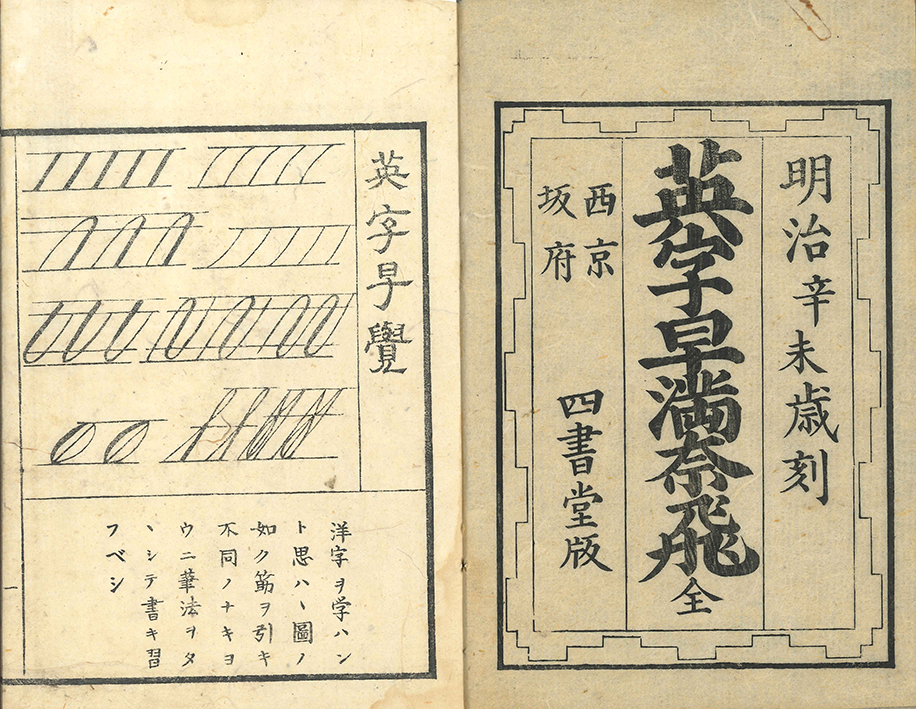 明治辛未歳刻
英字早満奈飛全
西京
坂府
四書堂版
英字早覺
洋字ヲ学ハン
ト思ハヽ圖ノ
如ク筋ヲ引キ
不同ノナキヨ
ウニ筆法ヲタ
ヽシテ書キ習
フベシ
一